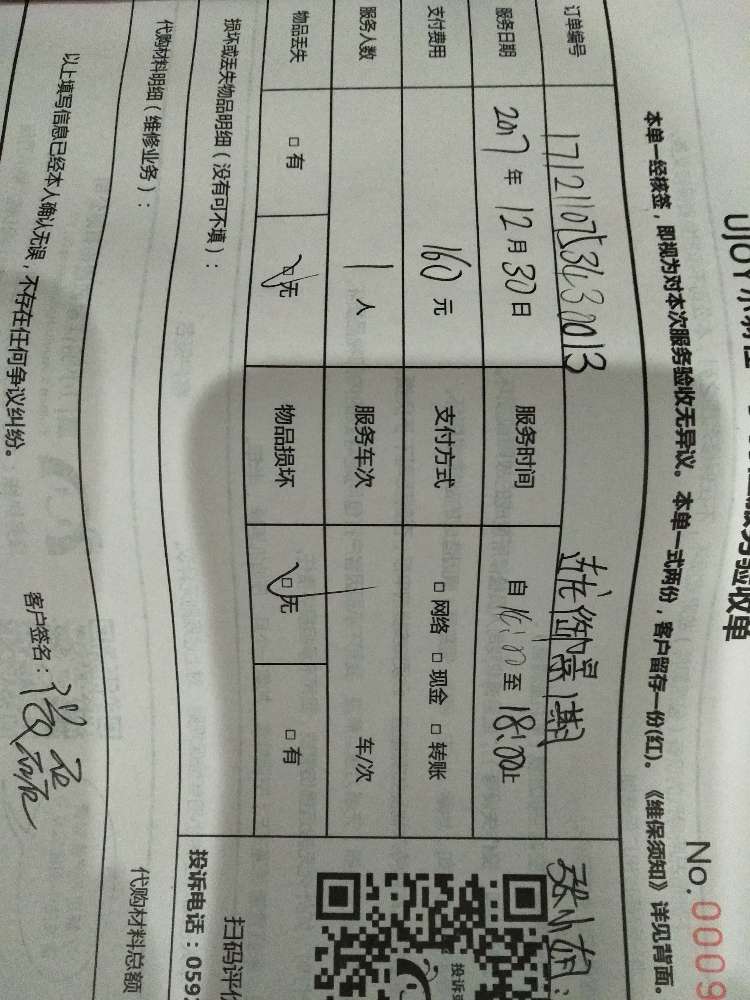 服务验收单
No.0009
本单一经核签，即视为对本次服务验收无异议。本单一式两份，客户留存一份(红)。《维保须知》详见背面。
订单编号 171211075343013
服务日期 2017年12月30日 服务时间 自16:00至18:00止
支付费用 160元 支付方式 □网络 □现金 □转账
服务人数 1人 服务车次 车/次
物品丢失 □有 □无 物品损坏 □无 □有
损坏或丢失物品明细（没有可不填）：
扫码评价
投诉电话：059
代购材料明细（维修业务）：
代购材料总额
以上填写信息已经本人确认无误，不存在任何争议纠纷。
客户签名：